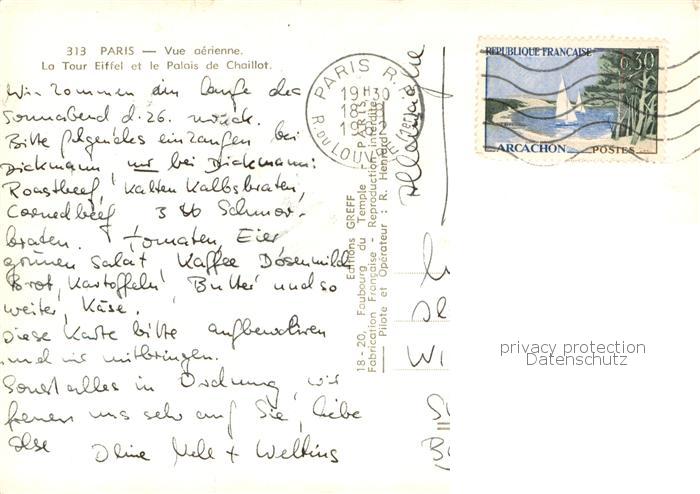 313 PARIS — Vue aérienne.
La Tour Eiffel et le Palais de Chaillot.
Wir kommen im Laufe des
Sonnabend d. 26. zurück.
Bitte folgendes einkaufen bei
Dickmann nur bei Dickmann:
Roastbeef, kalten Kalbsbraten,
Corned beef 3 Schmor-
braten. Tomaten, Eier
grünen Salat Kaffee Dosenmilch
Brot, Kartoffeln Butter und so
weiter, Käse.
Diese Karte bitte aufbewahren
und mitbringen.
Sonst alles in Ordnung, wir
freuen uns sehr auf Sie, liebe
Else
PARIS R.P.
19H30
R. DU LOUVRE
Editions GREFF
18 - 20, Faubourg du Temple - PARIS
Fabrication Française - Reproduction interdite
Pilote et Opérateur : R. Henrard
Allemagne
REPUBLIQUE FRANÇAISE
0,30
ARCACHON
POSTES
privacy protection
Datenschutz